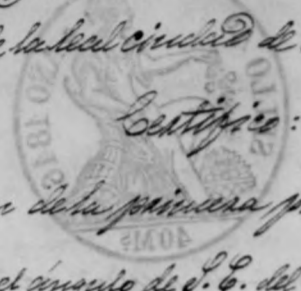 de la Real ciudad de
Certifico:
de la primera
el ángulo de S. E. del